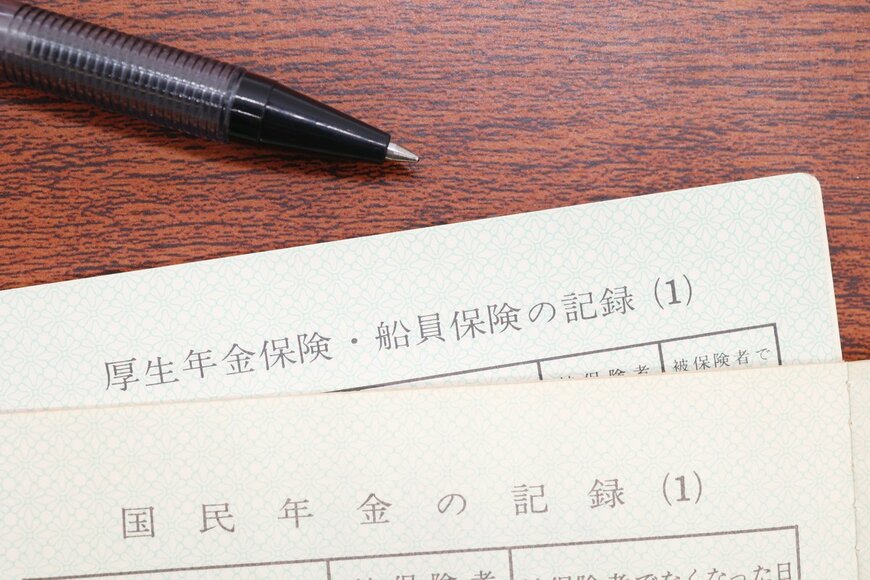 厚生年金保険・船員保険の記録(1)
保険者
被保険者で
国民年金の記録(1)
被保険者
保険者でなくなった日